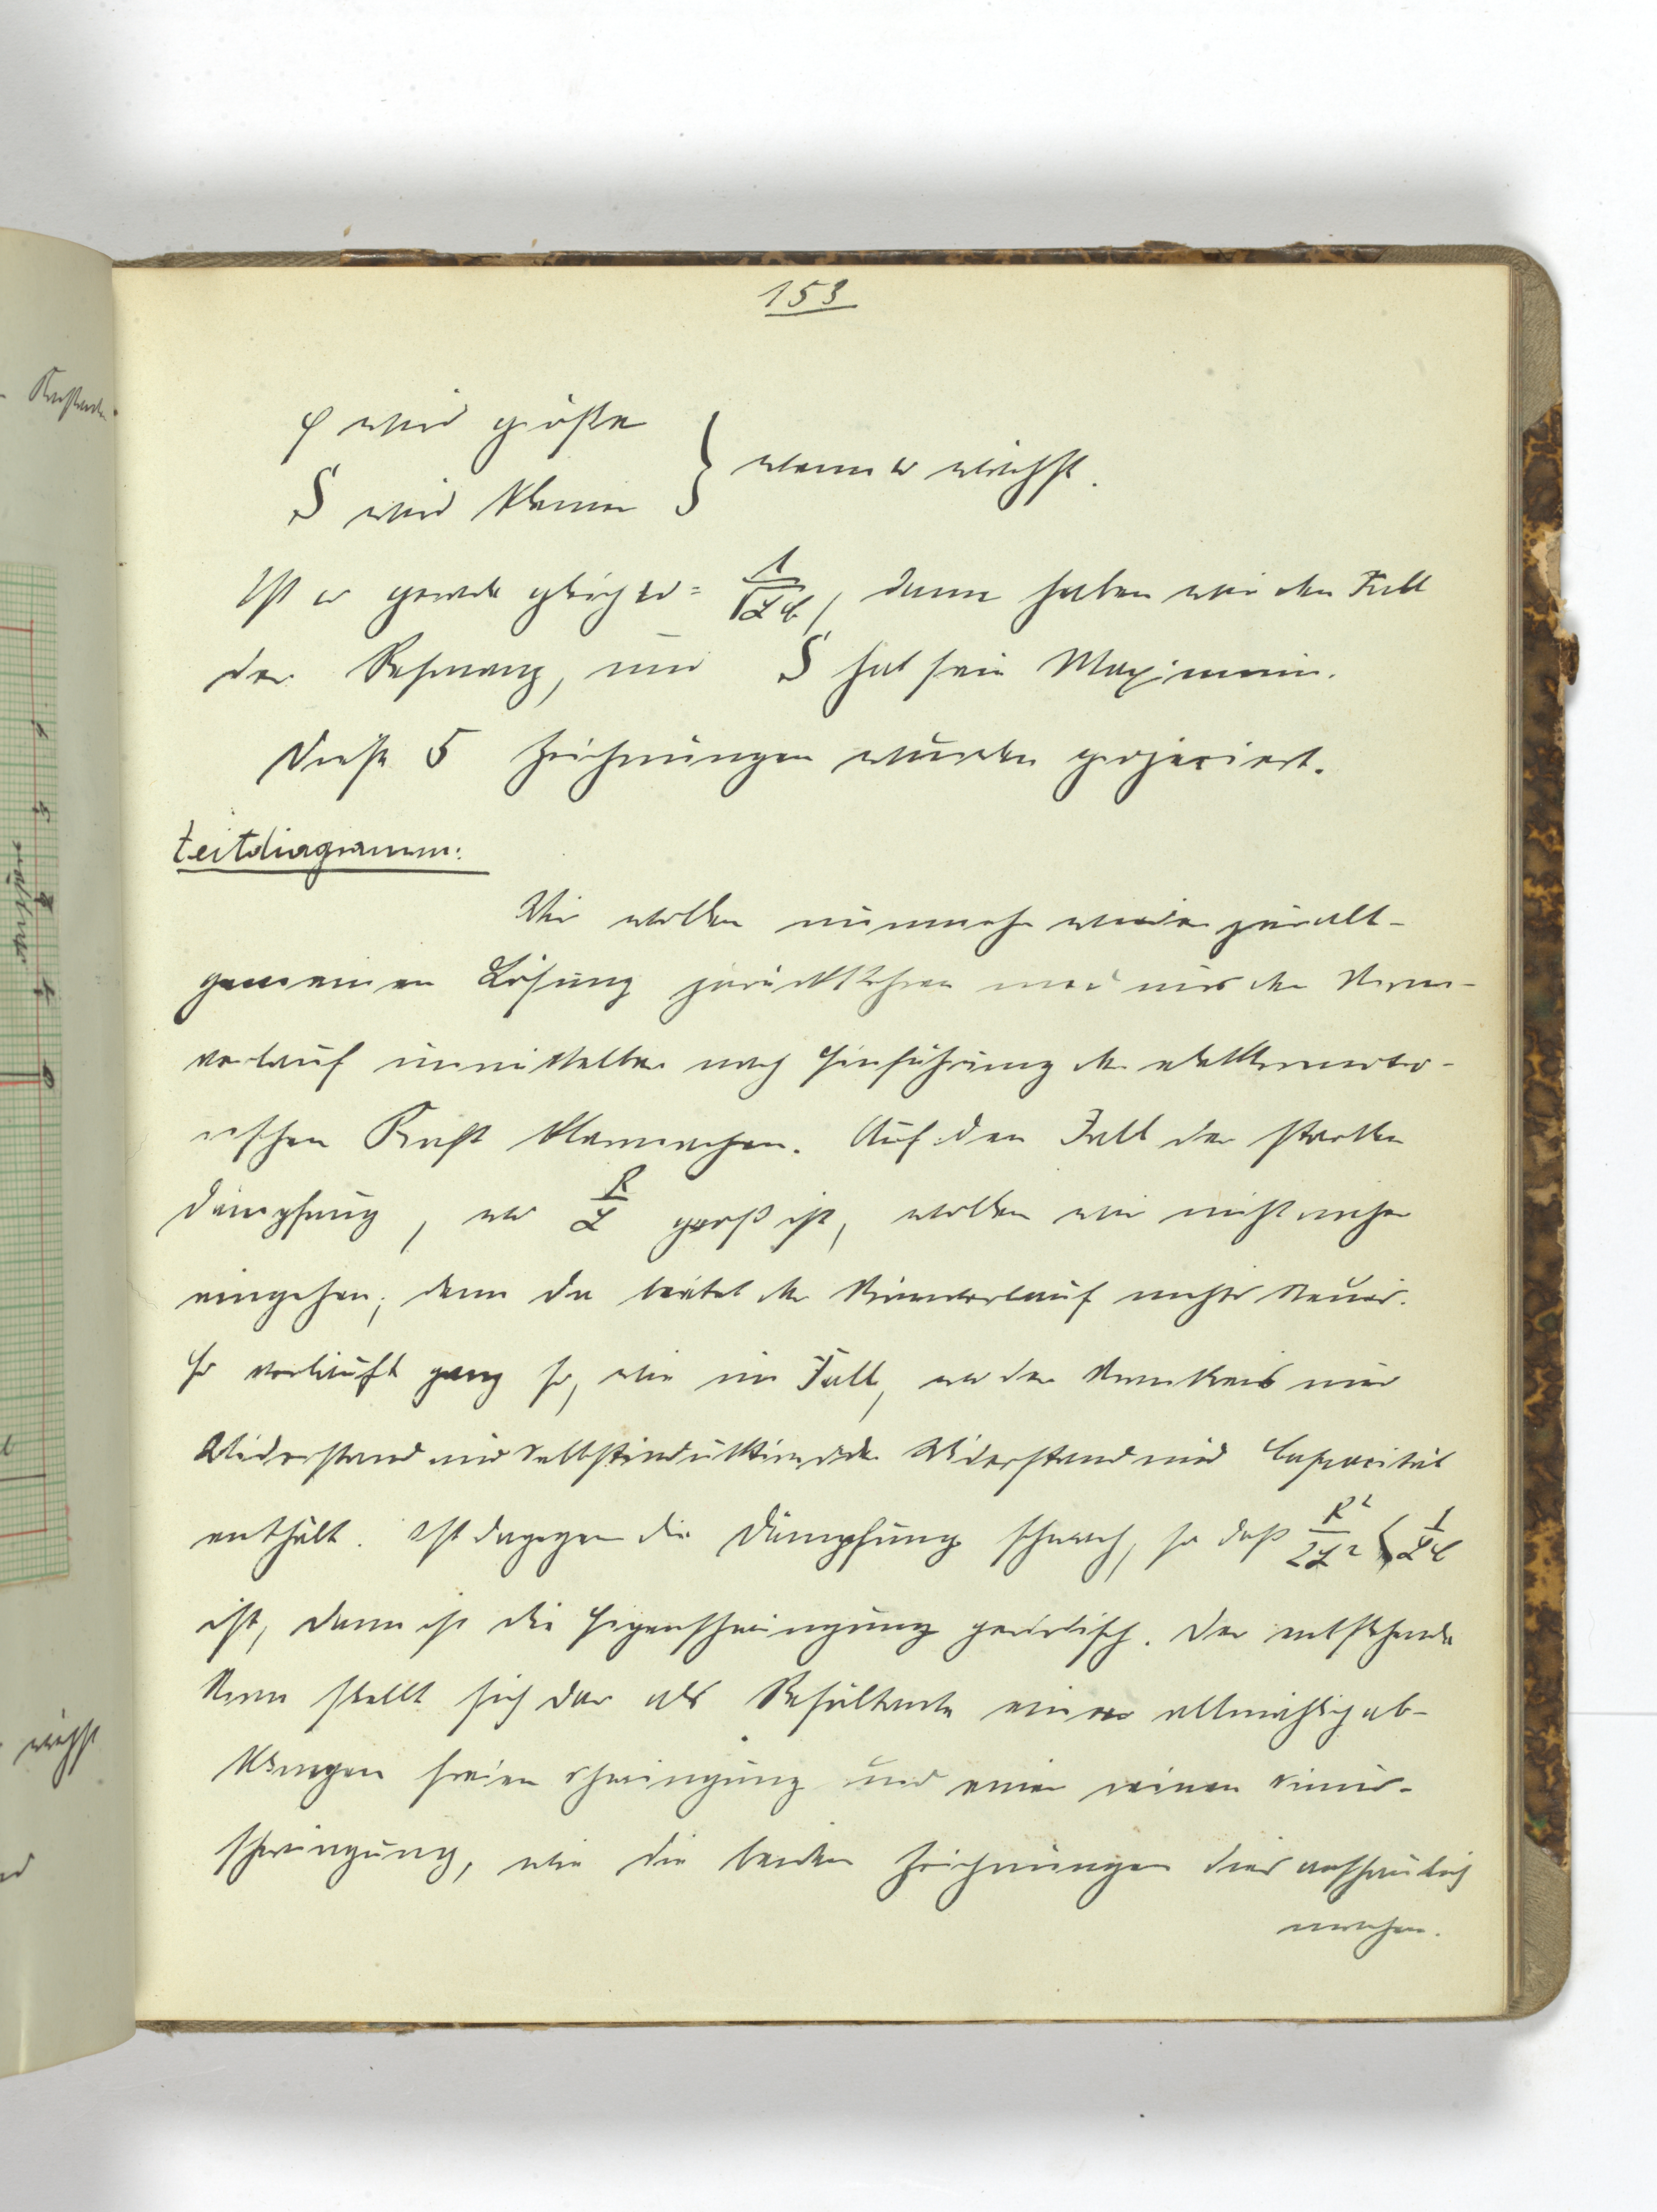 153
φ wird größer
S wird kleiner } wenn ω wächst.
Ist ω gerade gleich ω = 1/√LC, dann haben wir den Fall
der Resonanz, und S hat sein Maximum.
Diese 5 Zeichnungen wurden projeciert.
Zeitdiagramm:
Wir wollen nunmehr wieder zur all-
gemeinen Lösung zurückkehren und uns den Strom-
verlauf unmittelbar nach Einführung der elektromoto-
rischen Kraft klarmachen. Auf den Fall der starken
Dämpfung, wo R/L groß ist, wollen wir nicht näher
eingehen; denn da bietet der Stromverlauf nichts Neues.
Er verläuft ganz so, wie im Fall, wo der Stromkreis nur
Widerstand und Selbstinduktion oder Widerstand und Capacität
enthält. Ist dagegen die Dämpfung schwach, so daß R²/2L² < 1/LC
ist, dann ist die Eigenschwingung periodisch. Der entstehende
Strom stellt sich dar als Resultante einer allmählich ab-
klingen freien Schwingung und einer reinen Sinus-
schwingung, wie die beiden Zeichnungen dies anschaulich
machen.
Kraft
Ampère
1
2
3
4
5
wächst